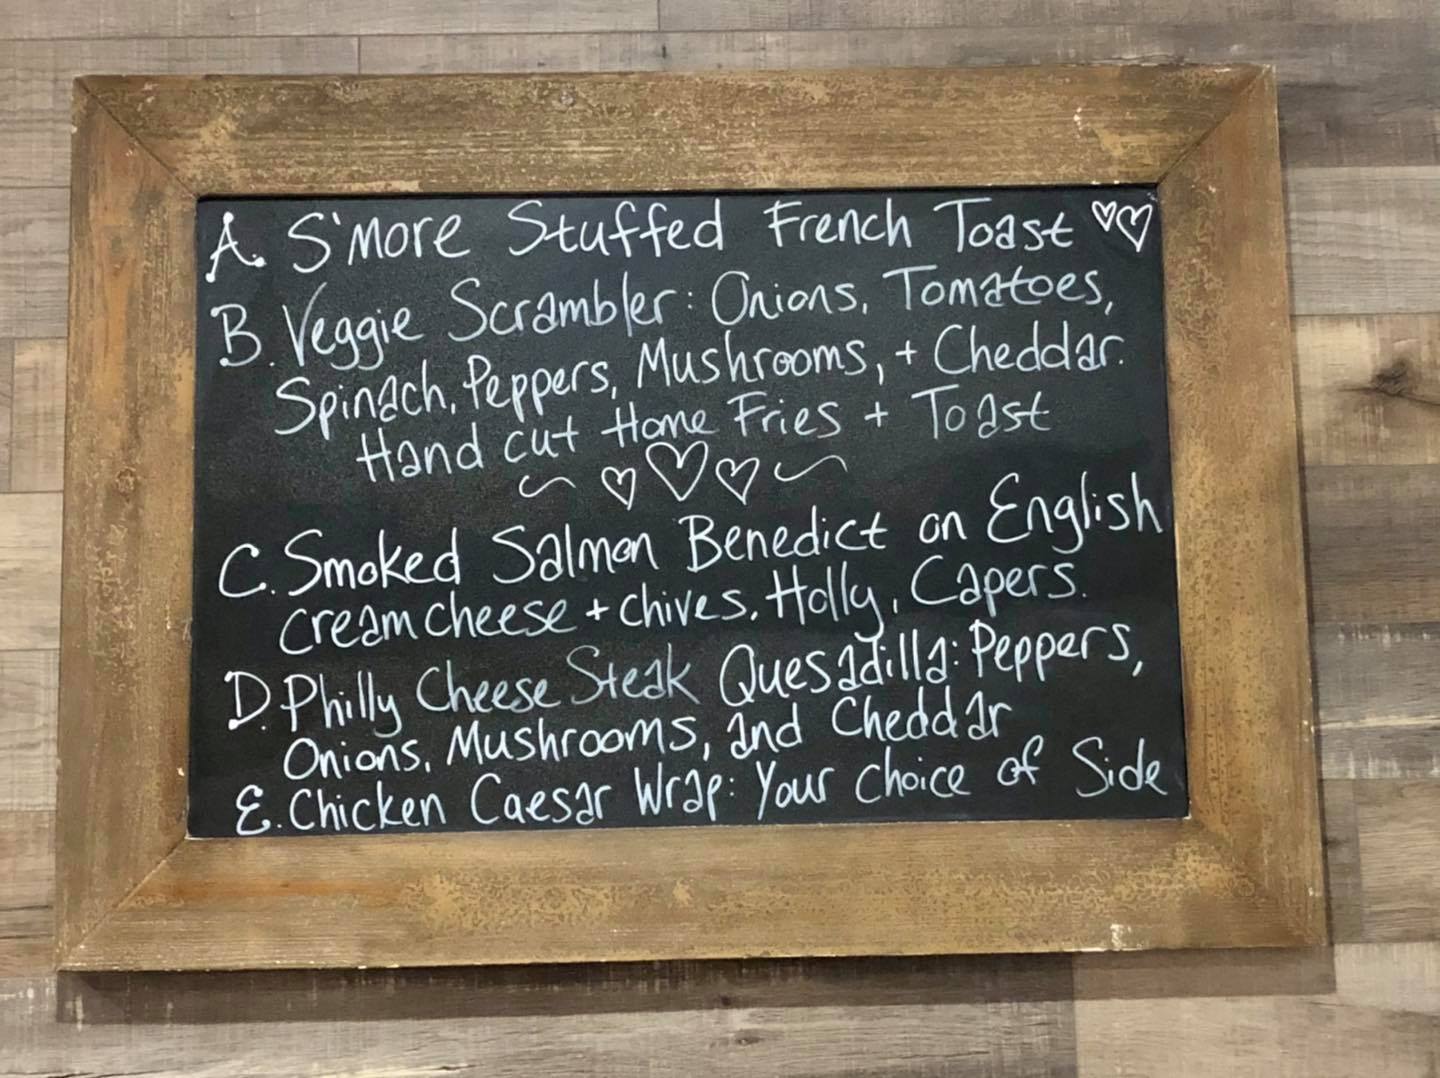 A. S'more Stuffed French Toast
B. Veggie Scrambler: Onions, Tomatoes,
Spinach, Peppers, Mushrooms, + Cheddar.
Hand cut Home Fries + Toast
C. Smoked Salmon Benedict on English
cream cheese + chives, Holly, Capers.
D. Philly Cheese Steak Quesadilla: Peppers,
Onions, Mushrooms, and Cheddar
E. Chicken Caesar Wrap: Your choice of Side